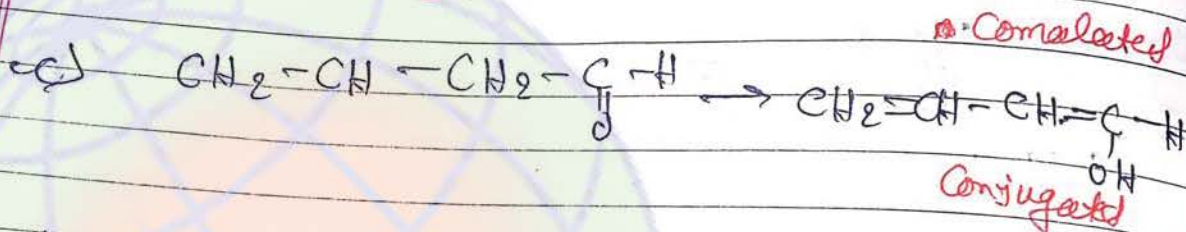 Comaleated
c) CH2-CH-CH2-C-H → CH2=CH-CH=C-H
O OH
Conjugated